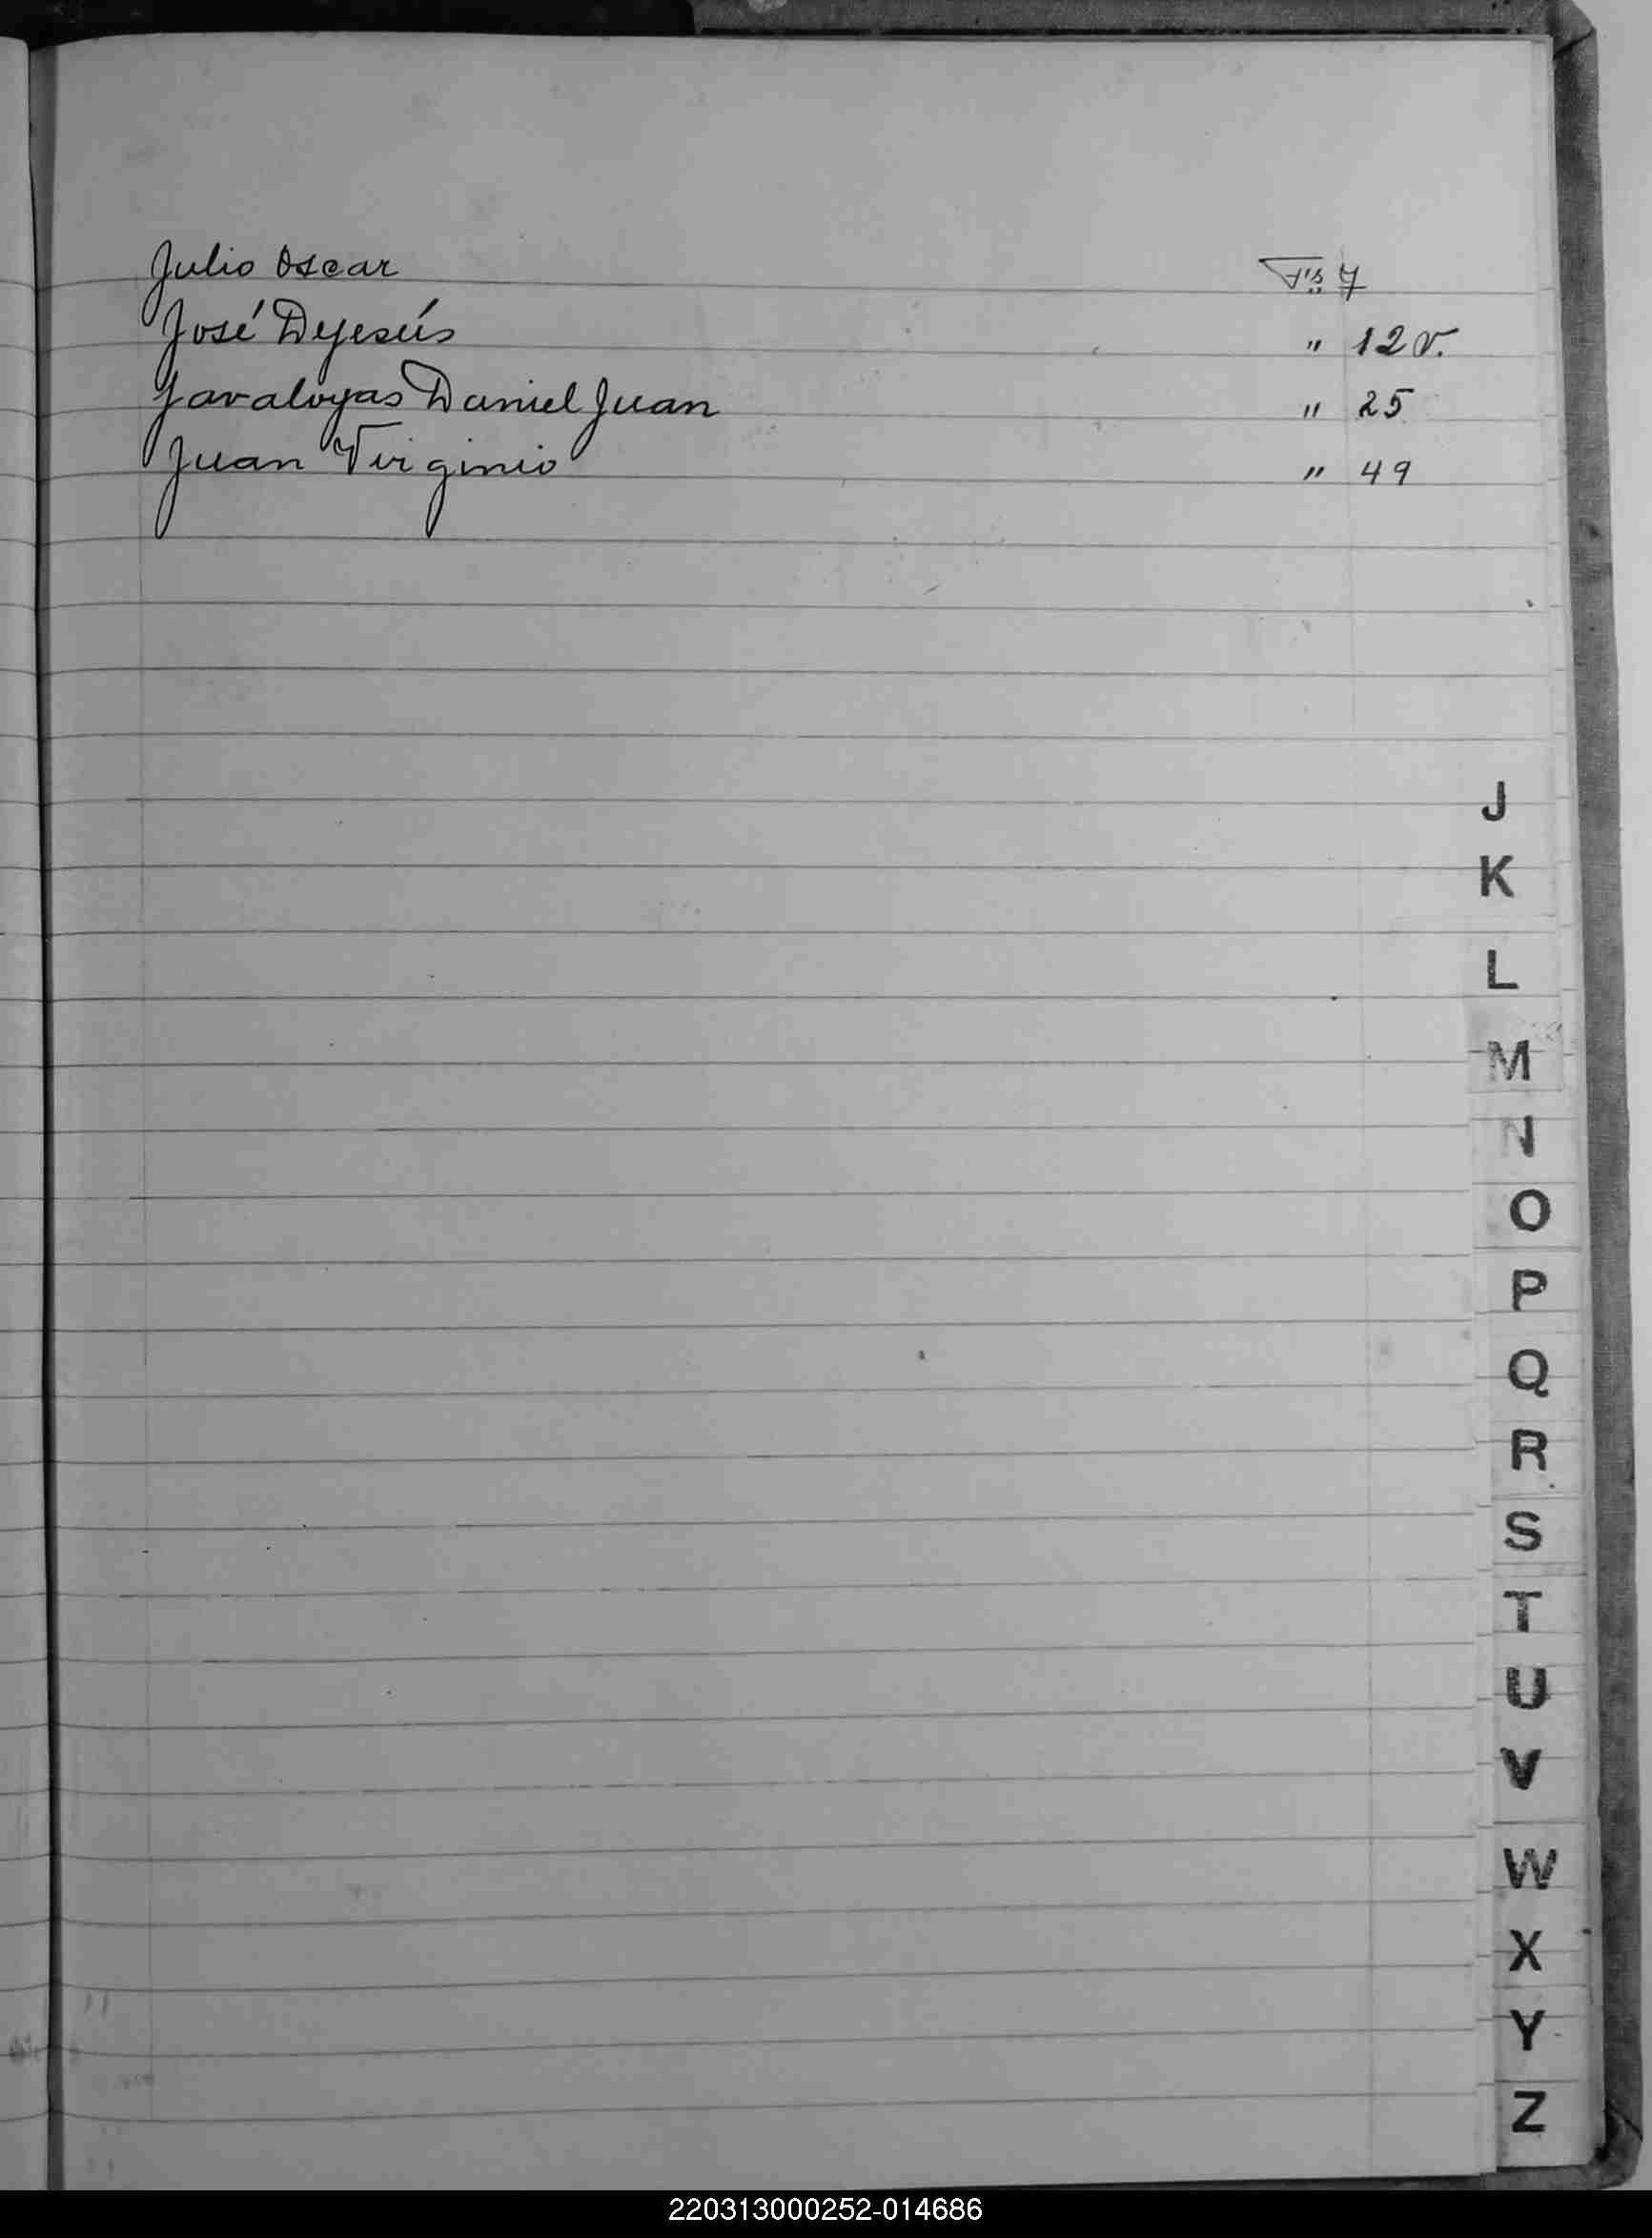 Julio Oscar Fs 7
José Dejesús " 12 v.
Javaloyas Daniel Juan " 25
Juan Virginio " 49
J
K
L
M
N
O
P
Q
R
S
T
U
V
W
X
Y
Z
220313000252-014686